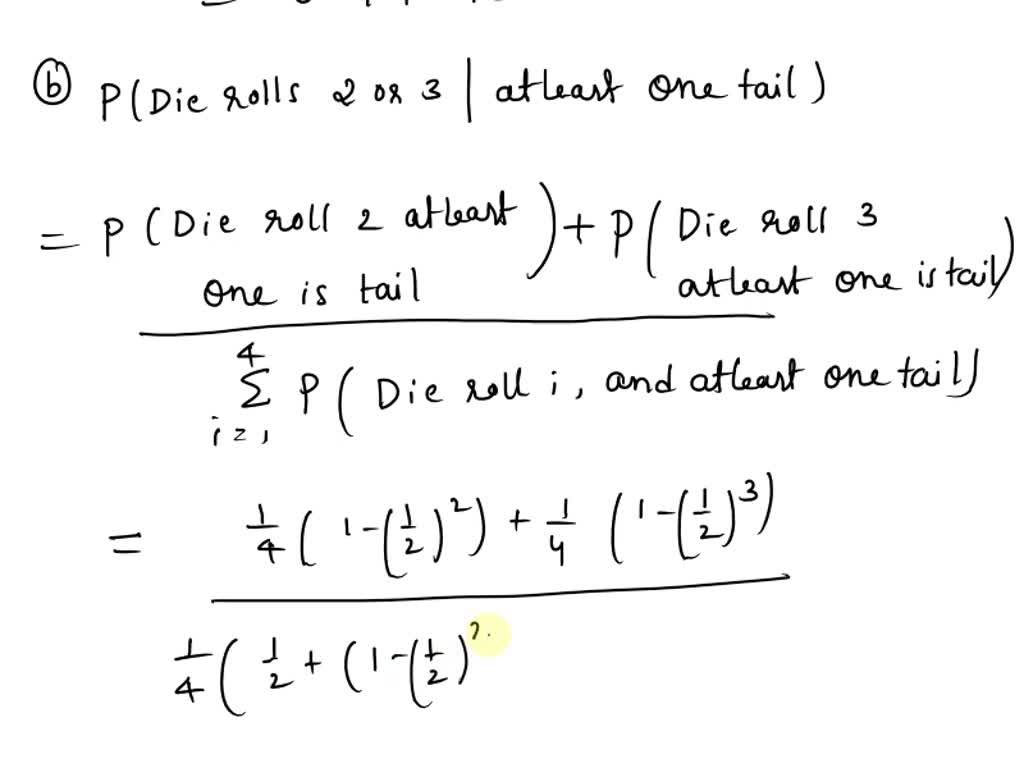 ⓑ P(Die rolls 2 or 3 | atleast one tail)
= P(Die roll 2 atleast one is tail) + P(Die roll 3 atleast one is tail)
4
Σ P(Die roll i, and atleast one tail)
i=1
= 1/4 (1-(1/2)^2) + 1/4 (1-(1/2)^3)
1/4 (1/2 + (1-(1/2)^2